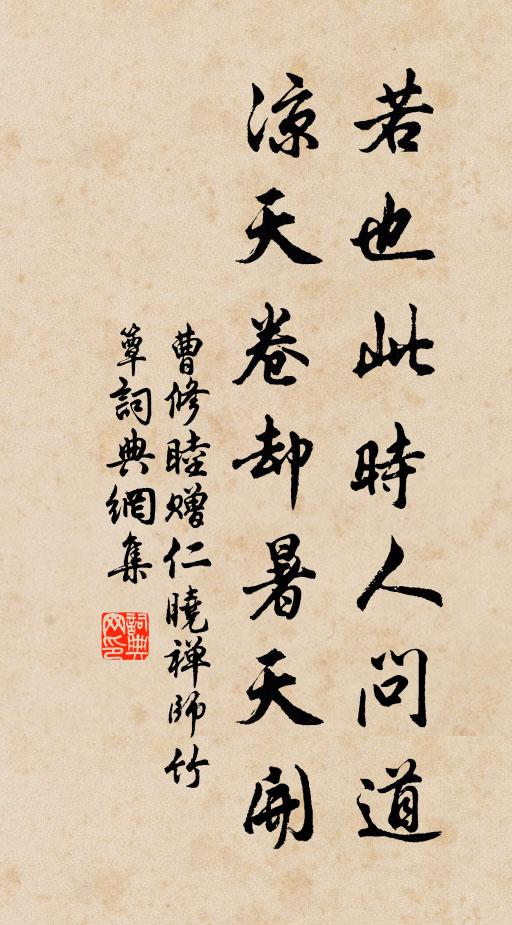 若也此時人問道
涼天卷却暑天開
曹修睦贈仁曉禅師竹
簟詞典網集
詞典
网印